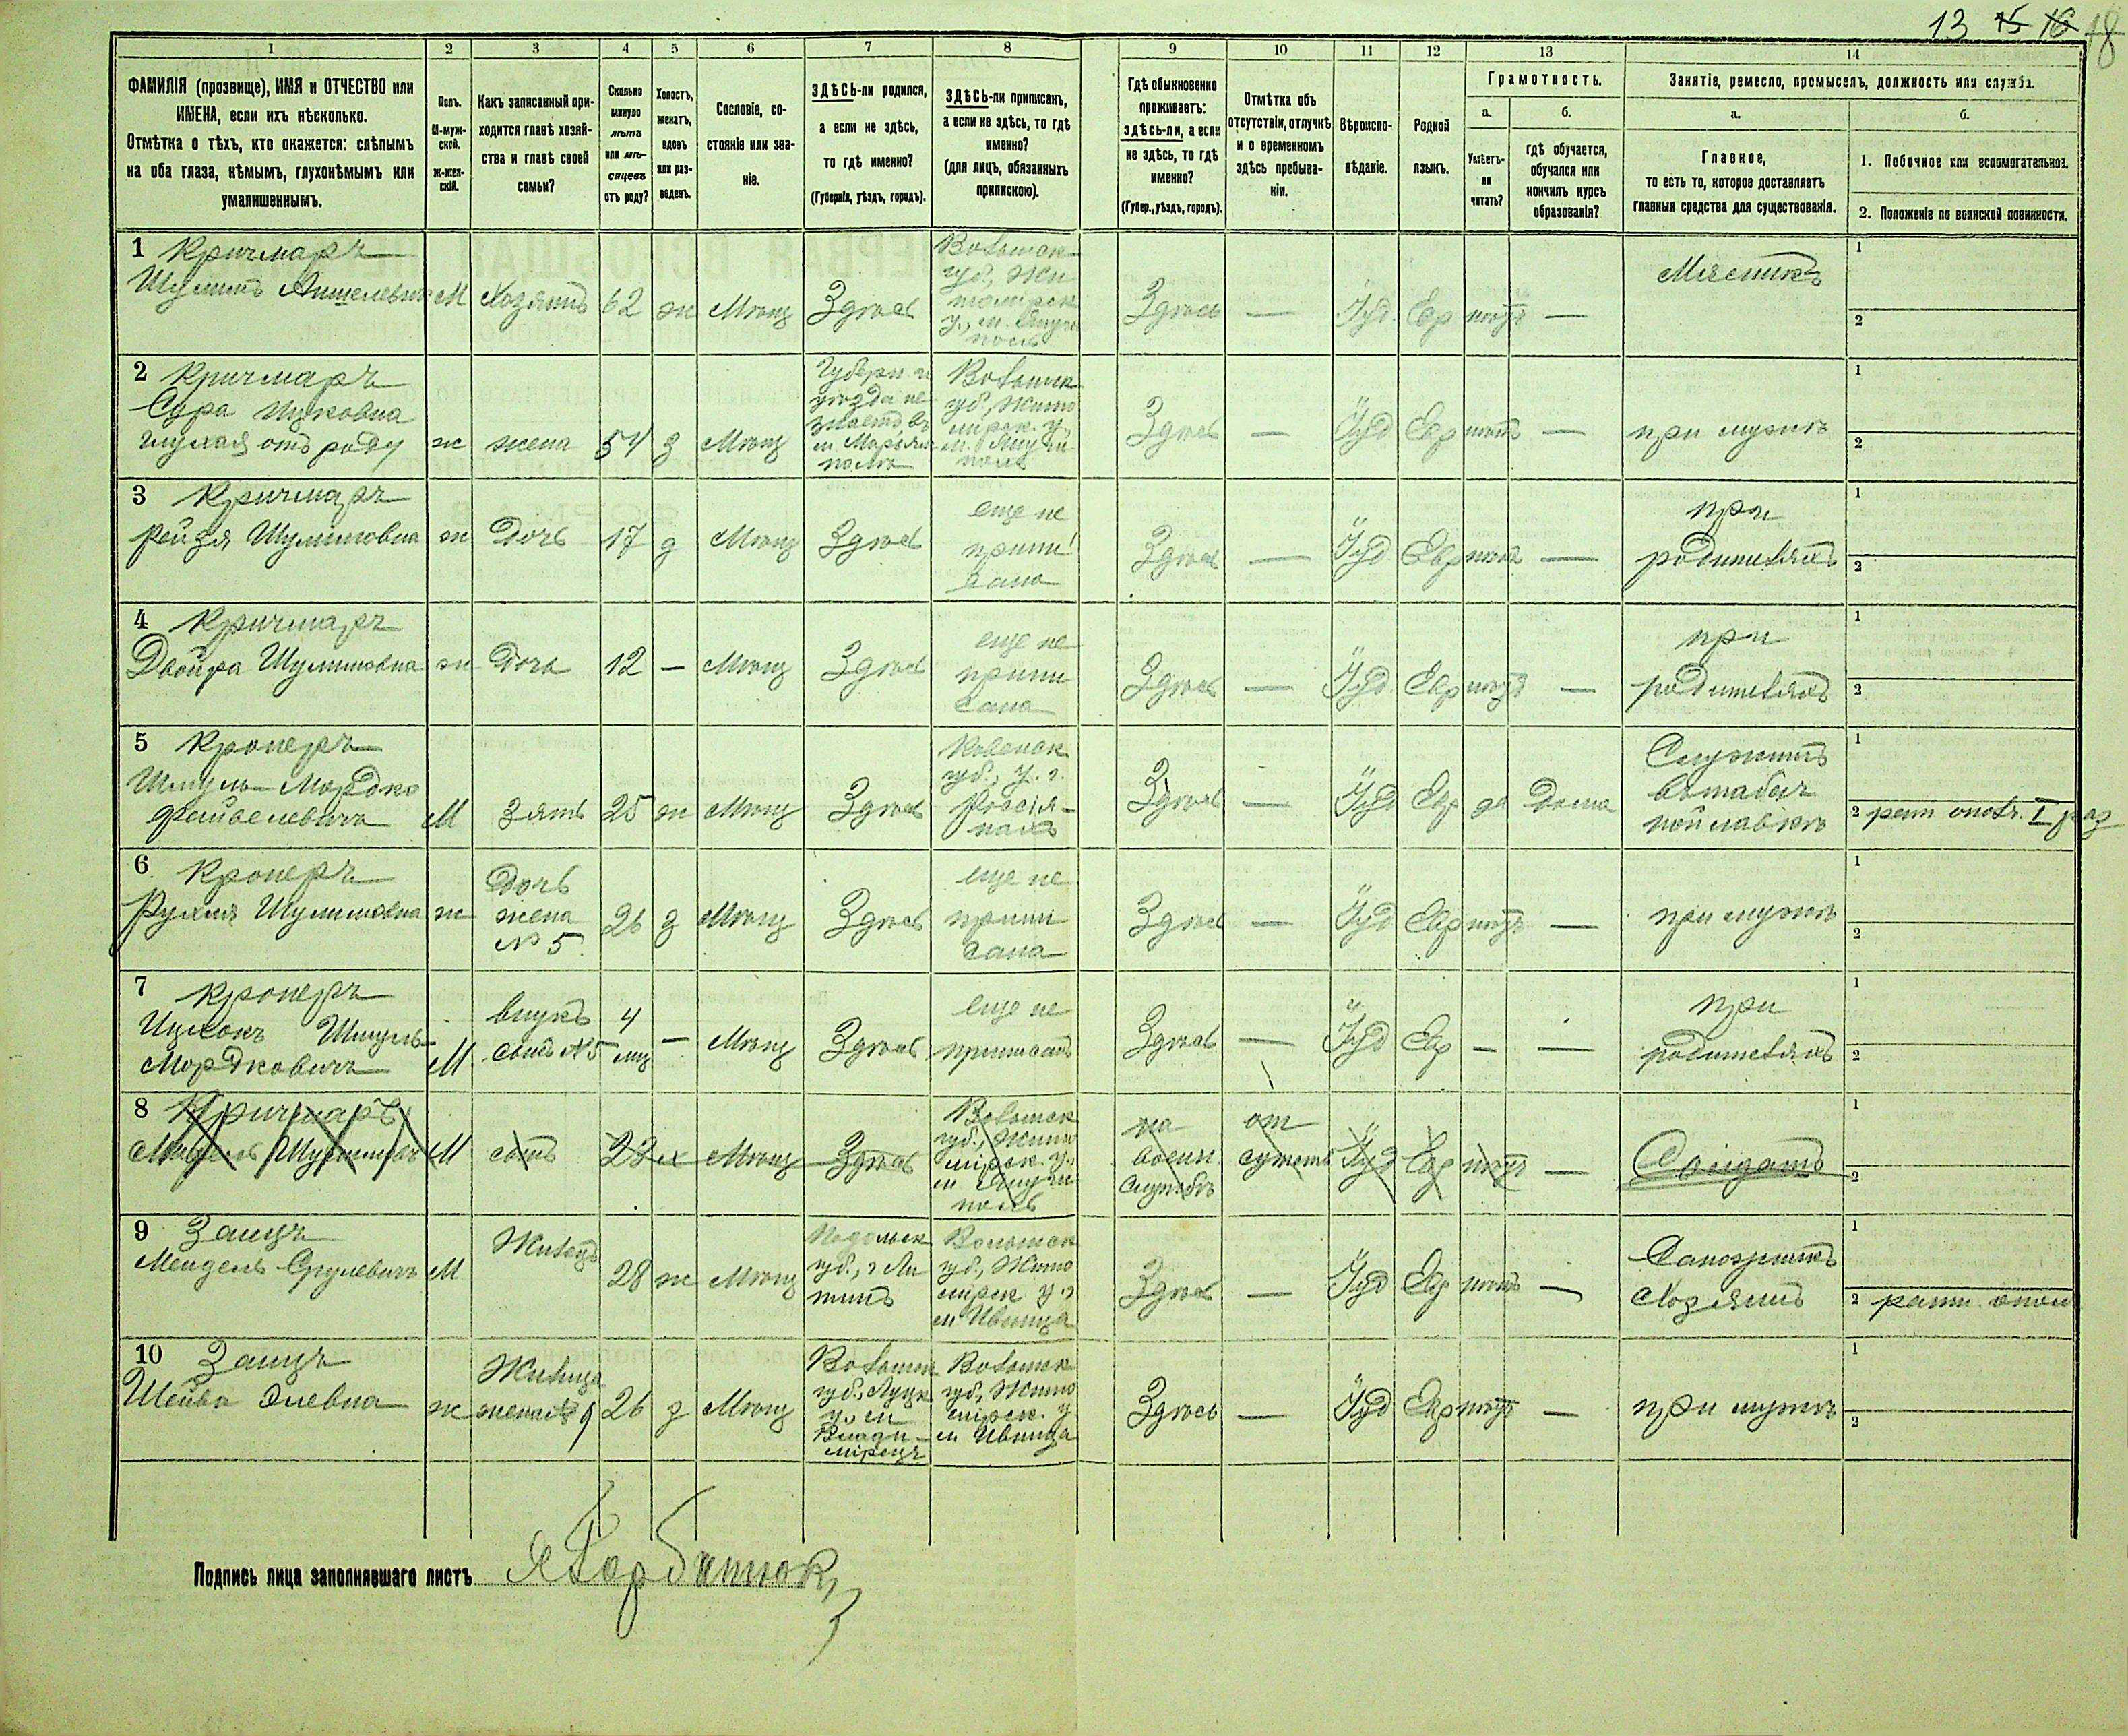 13 15 16 18
1 2 3 4 5 6 7 8 9 10 11 12 13 14
ФАМИЛІЯ (прозвище), ИМЯ и ОТЧЕСТВО или
ИМЕНА, если ихъ нѣсколько.
Отмѣтка о тѣхъ, кто окажется: слѣпымъ
на оба глаза, нѣмымъ, глухонѣмымъ или
умалишеннымъ.
Полъ.
М-муж-
ской.
Ж-жен-
скій.
Какъ записанный при-
ходится главѣ хозяй-
ства и главѣ своей
семьи?
Сколько
минуло
лѣтъ
или мѣ-
сяцевъ
отъ роду?
Холостъ,
женатъ,
вдовъ
или раз-
веденъ.
Сословіе, со-
стояніе или зва-
ніе.
ЗДѢСЬ-ли родился,
а если не здѣсь,
то гдѣ именно?
(Губернія, уѣздъ, городъ).
ЗДѢСЬ-ли приписанъ,
а если не здѣсь, то гдѣ
именно?
(для лицъ, обязанныхъ
припискою).
Гдѣ обыкновенно
проживаетъ:
здѣсь-ли, а если
не здѣсь, то гдѣ
именно?
(Губер., уѣздъ, городъ).
Отмѣтка объ
отсутствіи, отлучкѣ
и о временномъ
здѣсь пребыва-
ніи.
Вѣроиспо-
вѣданіе.
Родной
языкъ.
Грамотность.
а.
Умѣетъ-
ли
читать?
б.
гдѣ обучается,
обучался или
кончилъ курсъ
образованія?
Занятіе, ремесло, промыселъ, должность или служба.
а.
Главное,
то есть то, которое доставляетъ
главныя средства для существованія.
б.
1. Побочное или вспомогательное.
2. Положеніе по воинской повинности.
1 Кричмаръ
Шулимъ Аншелевичъ
М Хозяинъ 62 ж Мѣщ Здѣсь
Волынск
губ., Жи
томірск
у., м.
поль
Здѣсь — Іуд. Евр нѣтъ —
Мясникъ
1
2
2 Кричмаръ
Сура Ицковна
глухая отъ роду
ж жена 54 з Мѣщ
Губерн и
уѣзда не
знаетъ в
м. Марьям
поль
Волынск
губ., Жито
мірск. у.,
м.
поль
Здѣсь — Іуд Евр нѣтъ — при мужѣ
1
2
3 Кричмаръ
Рейзя Шулимовна
ж Дочь 17 д Мѣщ Здѣсь
еще не
припи
сана
Здѣсь — Іуд Евр нѣтъ —
при
родителяхъ
1
2
4 Кричмаръ
Двойра Шулимовна
ж Дочь 12 — Мѣщ Здѣсь
еще не
припи
сана
Здѣсь — Іуд. Евр нѣтъ —
при
родителяхъ
1
2
5 Кроперъ
Шмуль-Мордко
Файвелевичъ
М Зять 25 ж Мѣщ Здѣсь
Ковенск
губ., у. г.
Россія-
нахъ
Здѣсь — Іуд Евр да Дома
Служитъ
въ табач
ной лавкѣ
1
2 ратн ополч. I раз
6 Кроперъ
Рухля Шулимовна
ж
Дочь
жена
№ 5
26 з Мѣщ Здѣсь
еще не
припи
сана
Здѣсь — Іуд Евр нѣтъ — при мужѣ
1
2
7 Кроперъ
Ицхокъ Шмуль-
Мордковичъ
М
внукъ
сынъ № 5
4
мц
— Мѣщ Здѣсь
еще не
приписанъ
Здѣсь — Іуд Евр — —
при
родителяхъ
1
2
8 Кричмаръ
М сынъ 22 х Мѣщ Здѣсь
Волынск
губ., Жито
мірск. у.,
м.
поль
на
военн.
службѣ
от
сутств
Іуд Евр нѣтъ — Солдатъ
1
2
9 Заицъ
Мендель Срулевичъ
М Жилецъ 28 ж Мѣщ
Подольск
губ., г Ли
тинъ
Волынск
губ., Жито
мірск у.,
м Ивница
Здѣсь — Іуд Евр нѣтъ —
Сапожникъ
Хозяинъ
1
2 ратн. опол
10 Заицъ
Шейва Элевна
ж
Жилица
жена № 9
26 з Мѣщ
Волынск
губ., Луцк
у., м
Влади-
мірецъ
Волынск
губ., Жито
мірск. у
м Ивница
Здѣсь — Іуд Евр нѣтъ — при мужѣ
1
2
Подпись лица заполнявшаго листъ